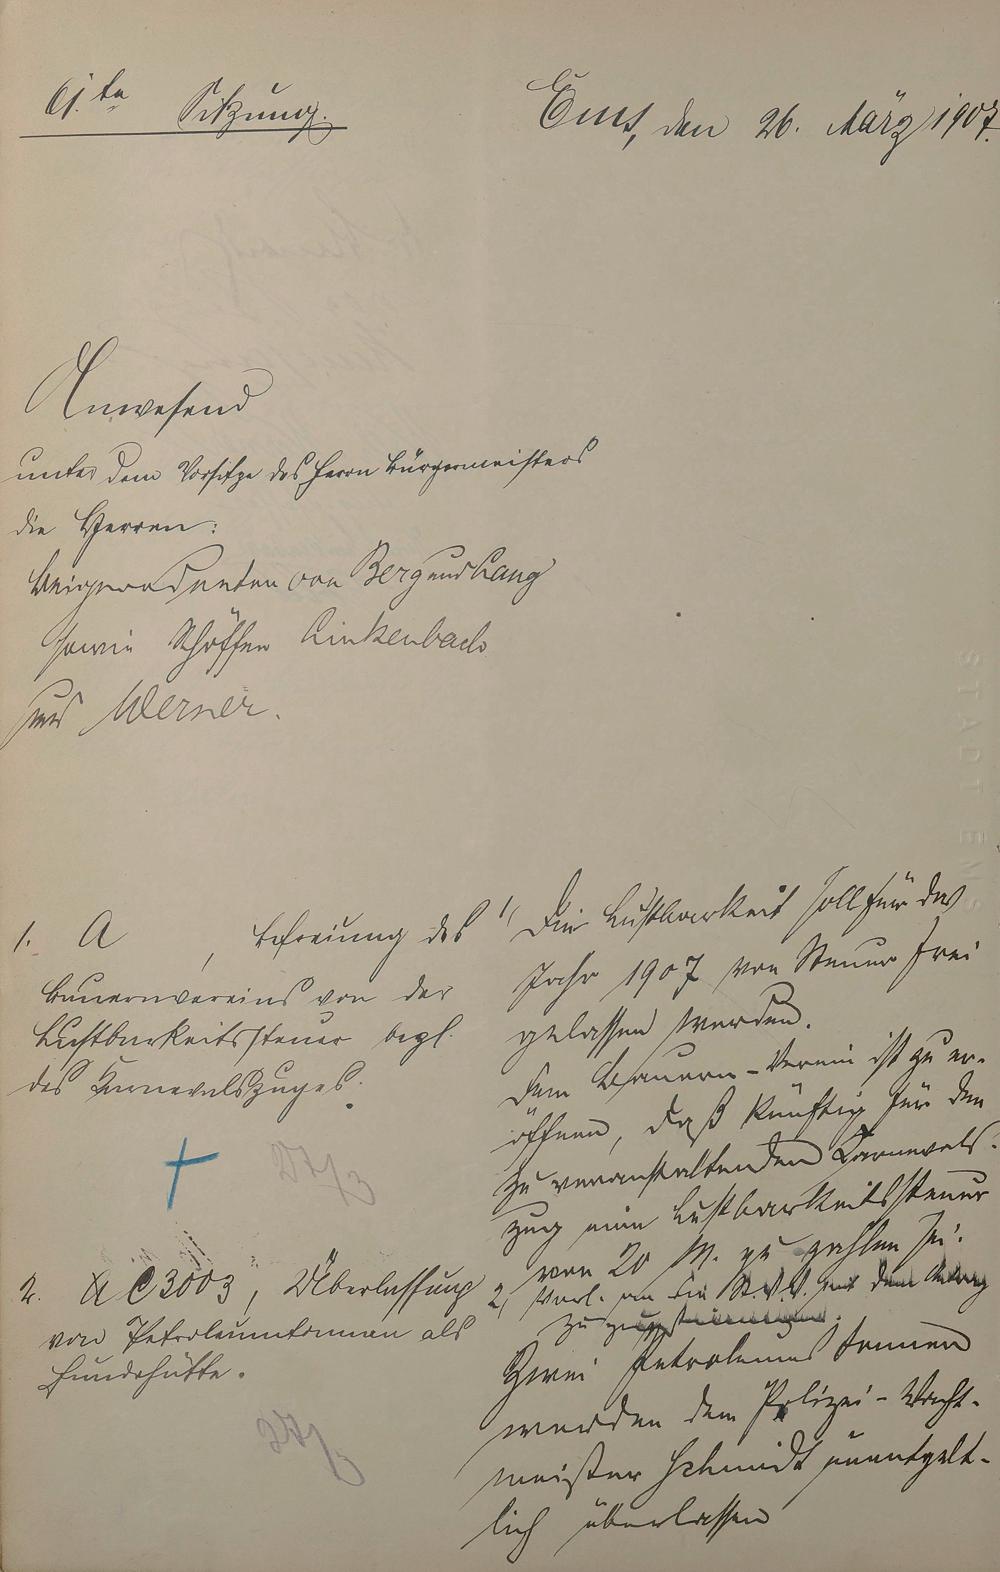 61.te Sitzung.
Ems, den 26. März 1907.
Anwesend
unter dem Vorsitze des Herrn Bürgermeisters
die Herren:
Beigeordneten von Berg und Lang
sowie Schöffen Linkenbach
und Werner.
1. A , Befreiung des
Bauernvereins von der
Lustbarkeitssteuer bezl.
des Karnevalszuges.
27/3
2. A C 3003, Überlassung
von Petroleumtonnen als
Hundehütte.
27/3
1, Die Lustbarkeit soll für das
Jahr 1907 von Steuer frei
gelassen werden.
Dem Bauern-Verein ist zu er-
öffnen, daß künftig für den
zu veranstaltenden Karnevals-
zug eine Lustbarkeitssteuer
von 20 M. zu zahlen sei.
2, Vorl. an die St.V.V. mit dem Antrag
zu
Zwei Petroleums tonnen
werden dem Polizei-Wacht-
meister Schmidt unentgelt-
lich überlassen
STADT EMS